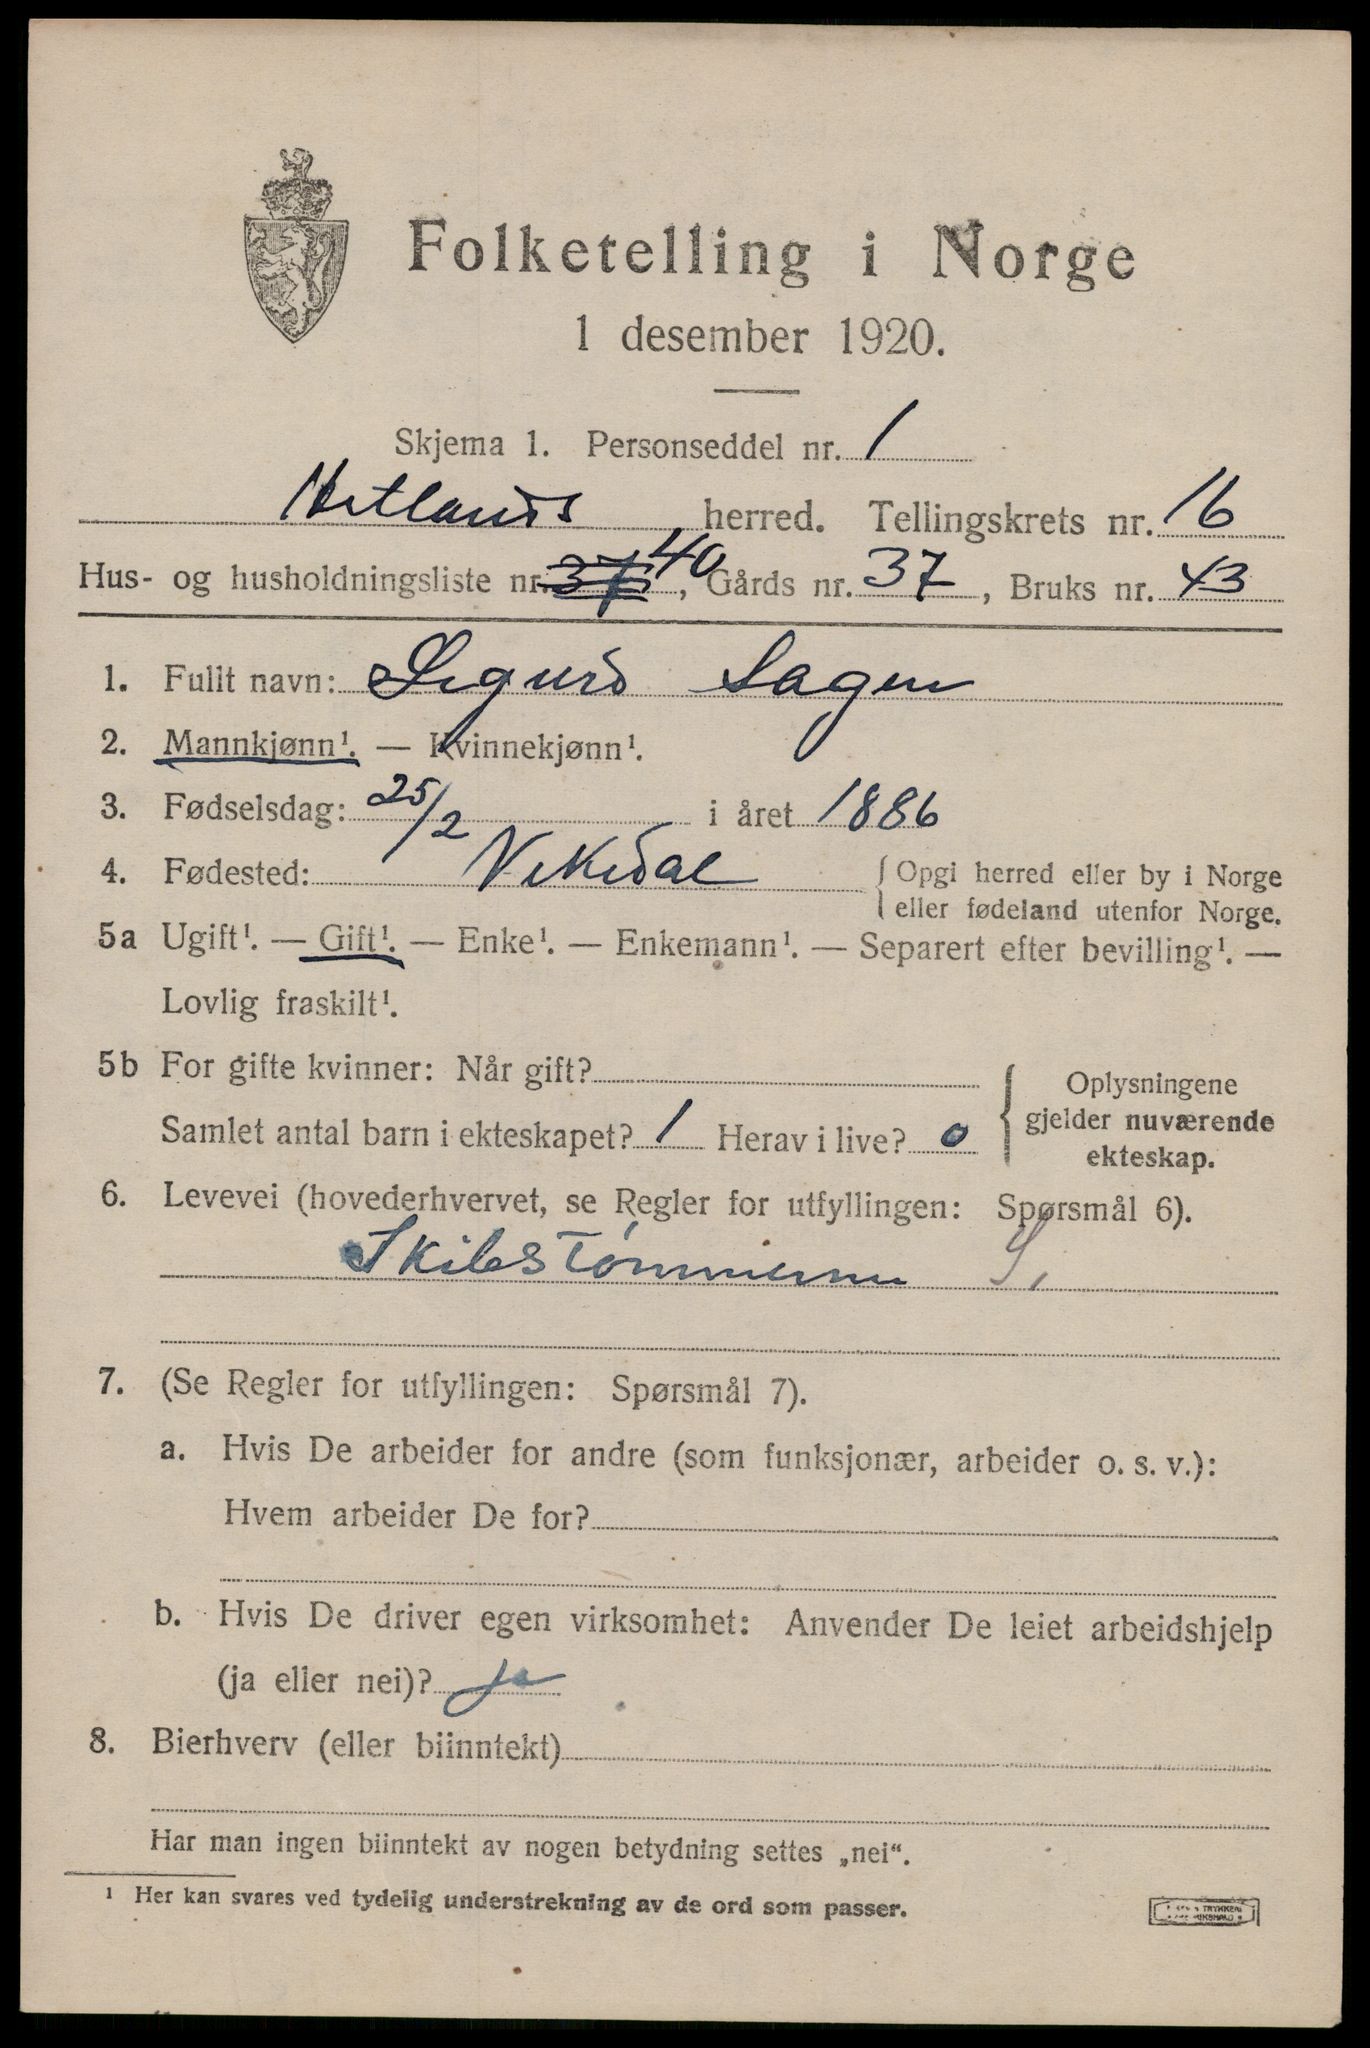 Folketelling i Norge
1 desember 1920.
Skjema 1. Personseddel nr. 1
Hetlands herred. Tellingskrets nr. 16
Hus- og husholdningsliste nr. 37 40, Gårds nr. 37, Bruks nr. 43
1. Fullt navn: Sigurd Sagen
2. Mannkjønn¹. — Kvinnekjønn¹.
3. Fødselsdag: 25/2 i året 1886
4. Fødested: Vikedal {Opgi herred eller by i Norge
eller fødeland utenfor Norge.
5a Ugift¹. — Gift¹. — Enke¹. — Enkemann¹. — Separert efter bevilling¹. —
Lovlig fraskilt¹.
5b For gifte kvinner: Når gift?
Samlet antal barn i ekteskapet? 1 Herav i live? 0
Oplysningene
gjelder nuværende
ekteskap.
6. Levevei (hovederhvervet, se Regler for utfyllingen: Spørsmål 6).
Skibstømmerm S.
7. (Se Regler for utfyllingen: Spørsmål 7).
a. Hvis De arbeider for andre (som funksjonær, arbeider o. s. v.):
Hvem arbeider De for?
b. Hvis De driver egen virksomhet: Anvender De leiet arbeidshjelp
(ja eller nei)? ja
8. Bierhverv (eller biinntekt)
Har man ingen biinntekt av nogen betydning settes „nei“.
¹ Her kan svares ved tydelig understrekning av de ord som passer.